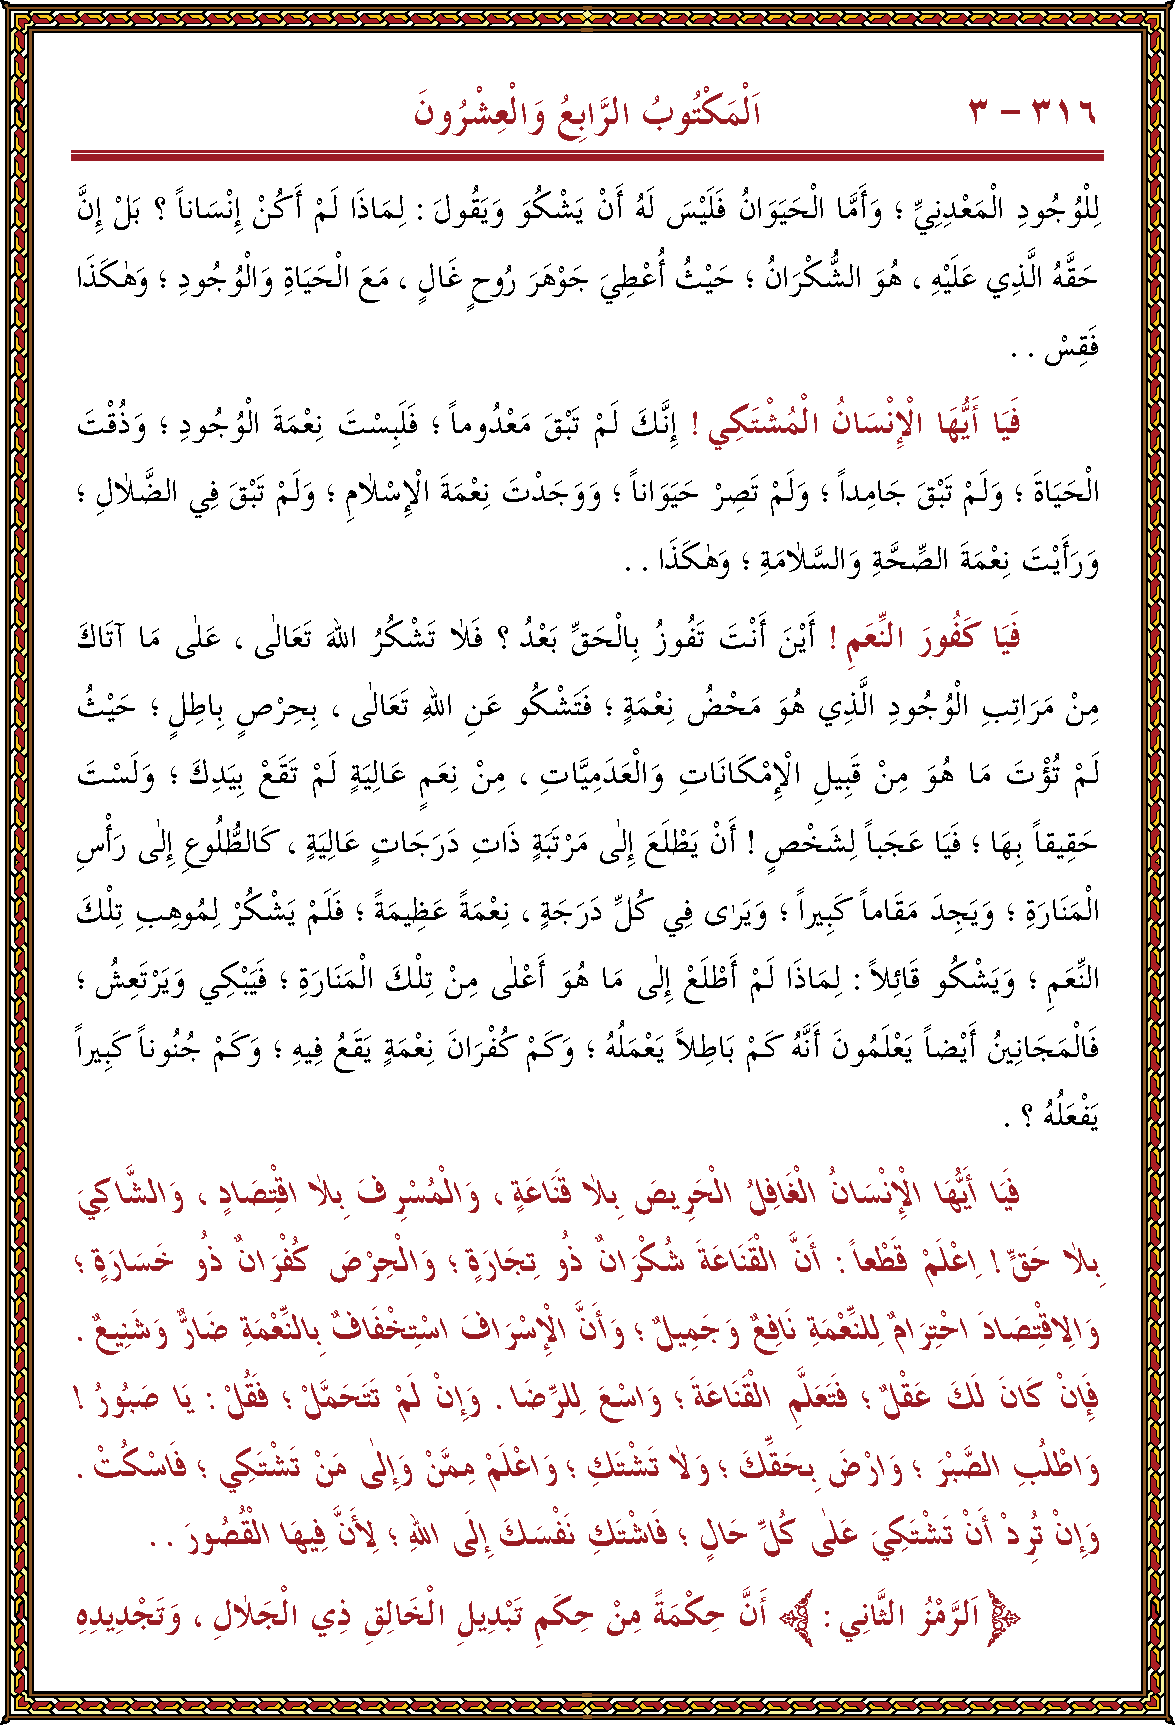 ٣١٦ – ٣ اَلْمَكْتُوبُ الرَّابِعُ وَالْعِشْرُونَ
لِلْوُجُودِ الْمَعْدِنِيِّ ؛ وَأَمَّا الْحَيَوَانُ فَلَيْسَ لَهُ أَنْ يَشْكُوَ وَيَقُولَ : لِمَاذَا لَمْ أَكُنْ إِنْسَاناً ؟ بَلْ إِنَّ
حَقَّهُ الَّذِي عَلَيْهِ ، هُوَ الشُّكْرَانُ ؛ حَيْثُ أُعْطِيَ جَوْهَرَ رُوحٍ غَالٍ ، مَعَ الْحَيَاةِ وَالْوُجُودِ ؛ وَهٰكَذَا
فَقِسْ . .
فَيَا أَيُّهَا الْإِنْسَانُ الْمُشْتَكِي ! إِنَّكَ لَمْ تَبْقَ مَعْدُوماً ؛ فَلَبِسْتَ نِعْمَةَ الْوُجُودِ ؛ وَذُقْتَ
الْحَيَاةَ ؛ وَلَمْ تَبْقَ جَامِداً ؛ وَلَمْ تَصِرْ حَيَوَاناً ؛ وَوَجَدْتَ نِعْمَةَ الْإِسْلاٰمِ ؛ وَلَمْ تَبْقَ فِي الضَّلاٰلِ ؛
وَرَأَيْتَ نِعْمَةَ الصِّحَّةِ وَالسَّلاٰمَةِ ؛ وَهٰكَذَا . .
فَيَا كَفُورَ النِّعَمِ ! أَيْنَ أَنْتَ تَفُوزُ بِالْحَقِّ بَعْدُ ؟ فَلاٰ تَشْكُرُ اللهَ تَعَالٰى ، عَلٰى مَا آتَاكَ
مِنْ مَرَاتِبِ الْوُجُودِ الَّذِي هُوَ مَحْضُ نِعْمَةٍ ؛ فَتَشْكُو عَنِ اللهِ تَعَالٰى ، بِحِرْصٍ بِاطِلٍ ؛ حَيْثُ
لَمْ تُؤْتَ مَا هُوَ مِنْ قَبِيلِ الْإِمْكَانَاتِ وَالْعَدَمِيَّاتِ ، مِنْ نِعَمٍ عَالِيَةٍ لَمْ تَقَعْ بِيَدِكَ ؛ وَلَسْتَ
حَقِيقاً بِهَا ؛ فَيَا عَجَباً لِشَخْصٍ ! أَنْ يَطْلَعَ إِلٰى مَرْتَبَةٍ ذَاتِ دَرَجَاتٍ عَالِيَةٍ ، كَالطُّلُوعِ إِلٰى رَأْسِ
الْمَنَارَةِ ؛ وَيَجِدَ مَقَاماً كَبِيراً ؛ وَيَرٰى فِي كُلِّ دَرَجَةٍ ، نِعْمَةً عَظِيمَةً ؛ فَلَمْ يَشْكُرْ لِمُوهِبِ تِلْكَ
النِّعَمِ ؛ وَيَشْكُو قَائِلاً : لِمَاذَا لَمْ أَطْلَعْ إِلٰى مَا هُوَ أَعْلٰى مِنْ تِلْكَ الْمَنَارَةِ ؛ فَيَبْكِي وَيَرْتَعِشُ ؛
فَالْمَجَانِينُ أَيْضاً يَعْلَمُونَ أَنَّهُ كَمْ بَاطِلاً يَعْمَلُهُ ؛ وَكَمْ كُفْرَانَ نِعْمَةٍ يَقَعُ فِيهِ ؛ وَكَمْ جُنُوناً كَبِيراً
يَفْعَلُهُ ؟ .
فَيَا أَيُّهَا الْإِنْسَانُ الْغَافِلُ الْحَرِيصَ بِلاٰ قَنَاعَةٍ ، وَالْمُسْرِفَ بِلاٰ اقْتِصَادٍ ، وَالشَّاكِيَ
بِلاٰ حَقٍّ ! اِعْلَمْ قَطْعاً : أَنَّ الْقَنَاعَةَ شُكْرَانٌ ذُو تِجَارَةٍ ؛ وَالْحِرْصَ كُفْرَانٌ ذُو خَسَارَةٍ ؛
وَالِاقْتِصَادَ احْتِرَامٌ لِلنِّعْمَةِ نَافِعٌ وَجَمِيلٌ ؛ وَأَنَّ الْإِسْرَافَ اسْتِخْفَافٌ بِالنِّعْمَةِ ضَارٌّ وَشَنِيعٌ .
فَإِنْ كَانَ لَكَ عَقْلٌ ؛ فَتَعَلَّمِ الْقَنَاعَةَ ؛ وَاسْعَ لِلرِّضَا . وَإِنْ لَمْ تَتَحَمَّلْ ؛ فَقُلْ : يَا صَبُورُ !
وَاطْلُبِ الصَّبْرَ ؛ وَارْضَ بِحَقِّكَ ؛ وَلاٰ تَشْتَكِ ؛ وَاعْلَمْ مِمَّنْ وَإِلٰى مَنْ تَشْتَكِي ؛ فَاسْكُتْ .
وَإِنْ تُرِدْ أَنْ تَشْتَكِيَ عَلٰى كُلِّ حَالٍ ؛ فَاشْتَكِ نَفْسَكَ إِلَى اللهِ ؛ لِأَنَّ فِيهَا الْقُصُورَ . .
اَلرَّمْزُ الثَّانِي : أَنَّ حِكْمَةً مِنْ حِكَمِ تَبْدِيلِ الْخَالِقِ ذِي الْجَلاٰلِ ، وَتَجْدِيدِهِ